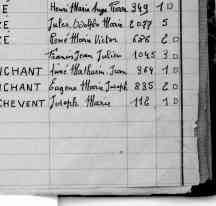 É Henri Marie Ange Pierre 349 10
RÉ Jules Marie 2077 5
ZÉ René Marie Victor 686 20
Jean Julien 1045 30
NCHANT Aimé Mathurin Jean 964 10
NCHANT Eugène Marie Joseph 835 20
CHEVENT Joseph Marie 112 10